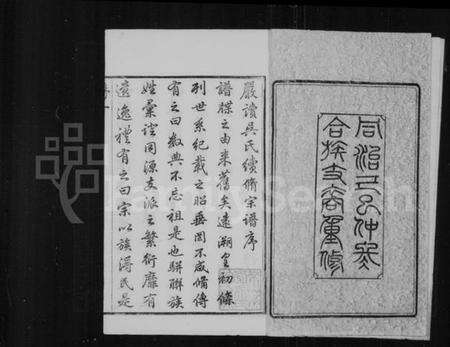 同治仲冬
合族支裔重修
嚴瀆吳氏續脩宗譜序
譜牒之由來舊矣遠溯皇初條
列世系紀載之昭垂罔不咸備傳
有之曰數典不忘祖是也駢聯族
姓彙證同源支派之繁衍靡有
遠逸禮有之曰宗以族得民是